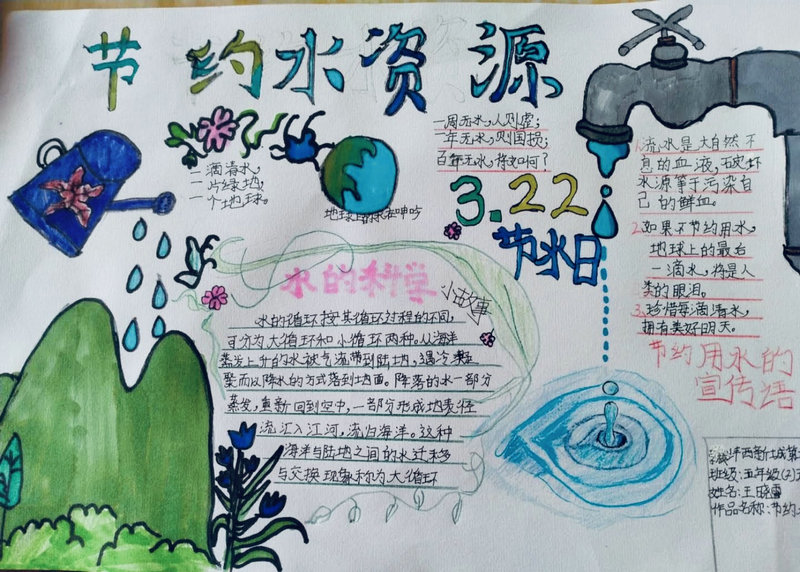 节约水资源
一滴清水，
一片绿地，
一个地球。
地球上的水在呻吟
一周无水，人则虚；
一年无水，则国损；
百年无水，将如何？
3.22
节水日
水的科学
小故事
水的循环按其循环过程的不同，
可分为大循环和小循环两种。从海洋
蒸发上升的水被气流带到陆地，遇冷凝
聚而以降水的方式落到地面。降落的水一部分
蒸发，重新回到空中，一部分形成地表径
流汇入江河，流归海洋。这种
海洋与陆地之间的水迁移
与交换现象称为大循环
1.流水是大自然不
息的血液，破坏
水源等于污染自
己的鲜血。
2.如果不节约用水，
地球上的最后
一滴水，将是人
类的眼泪。
3.珍惜每滴清水，
拥有美好明天。
节约用水的
宣传语
班级：五年级(2)
姓名：王晓雷
作品名称：节约